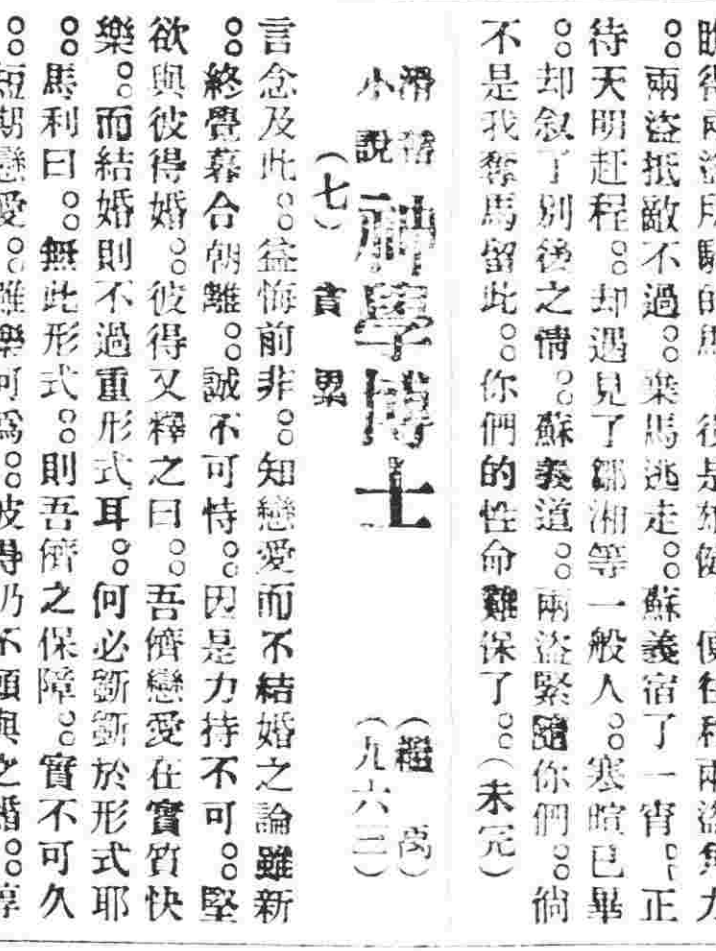 。兩盜抵敵不過。乘馬逃走。蘇義宿了一宵。正
待天明赶程。却遇見了鄒湘等一般人。寒暄已畢
。却叙了別後之情。蘇義道。兩盜緊隨你們。徜
不是我奪馬留此。你們的性命難保了。（未完）
滑稽
小說
神學博士
（繼禹）
（九六三）
（七）
言念及此。益悔前非。知戀愛而不結婚之論雖新
。終覺暮合朝離。誠不可恃。因是力持不可。堅
欲與彼得婚。彼得又釋之曰。吾儕戀愛在實質快
樂。而結婚則不過重形式耳。何必斷斷於形式耶
。馬利曰。無此形式。則吾儕之保障。實不可久
。短期戀愛。雖樂何爲。彼得乃不願與之婚。